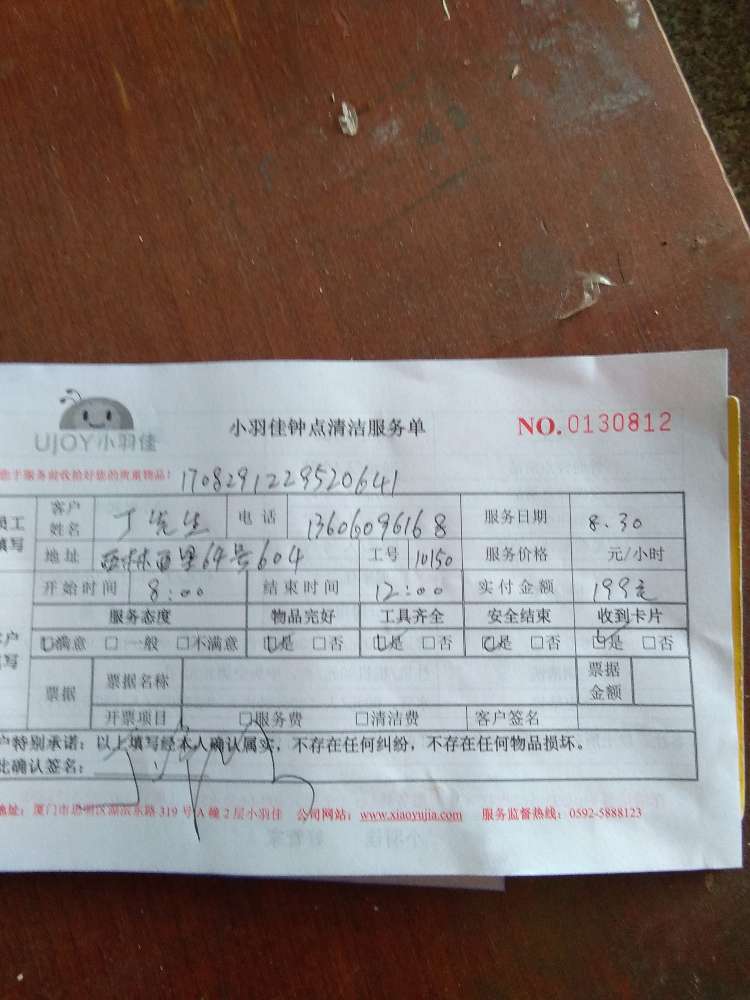 UJOY小羽佳
小羽佳钟点清洁服务单
NO. 0130812
您于服务前收拾好您的贵重物品！ 1708291229520641
员工
填写
客户姓名 丁先生 电话 13606096168 服务日期 8.30
地址 西林西里64号604 工号 10150 服务价格 元/小时
开始时间 8:00 结束时间 12:00 实付金额 199元
服务态度 物品完好 工具齐全 安全结束 收到卡片
客户
填写
☑满意 □一般 □不满意 ☑是 □否 ☑是 □否 ☑是 □否 ☑是 □否
票据 票据名称 票据金额
开票项目 □服务费 □清洁费 客户签名
户特别承诺：以上填写经本人确认属实，不存在任何纠纷，不存在任何物品损坏。
此确认签名：
地址：厦门市思明区湖滨东路319号A幢2层小羽佳 公司网站：www.xiaoyujia.com 服务监督热线：0592-5888123